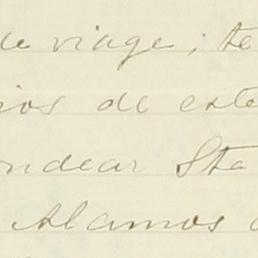 de viage; te
ios de este
ondear Sta
Alamos